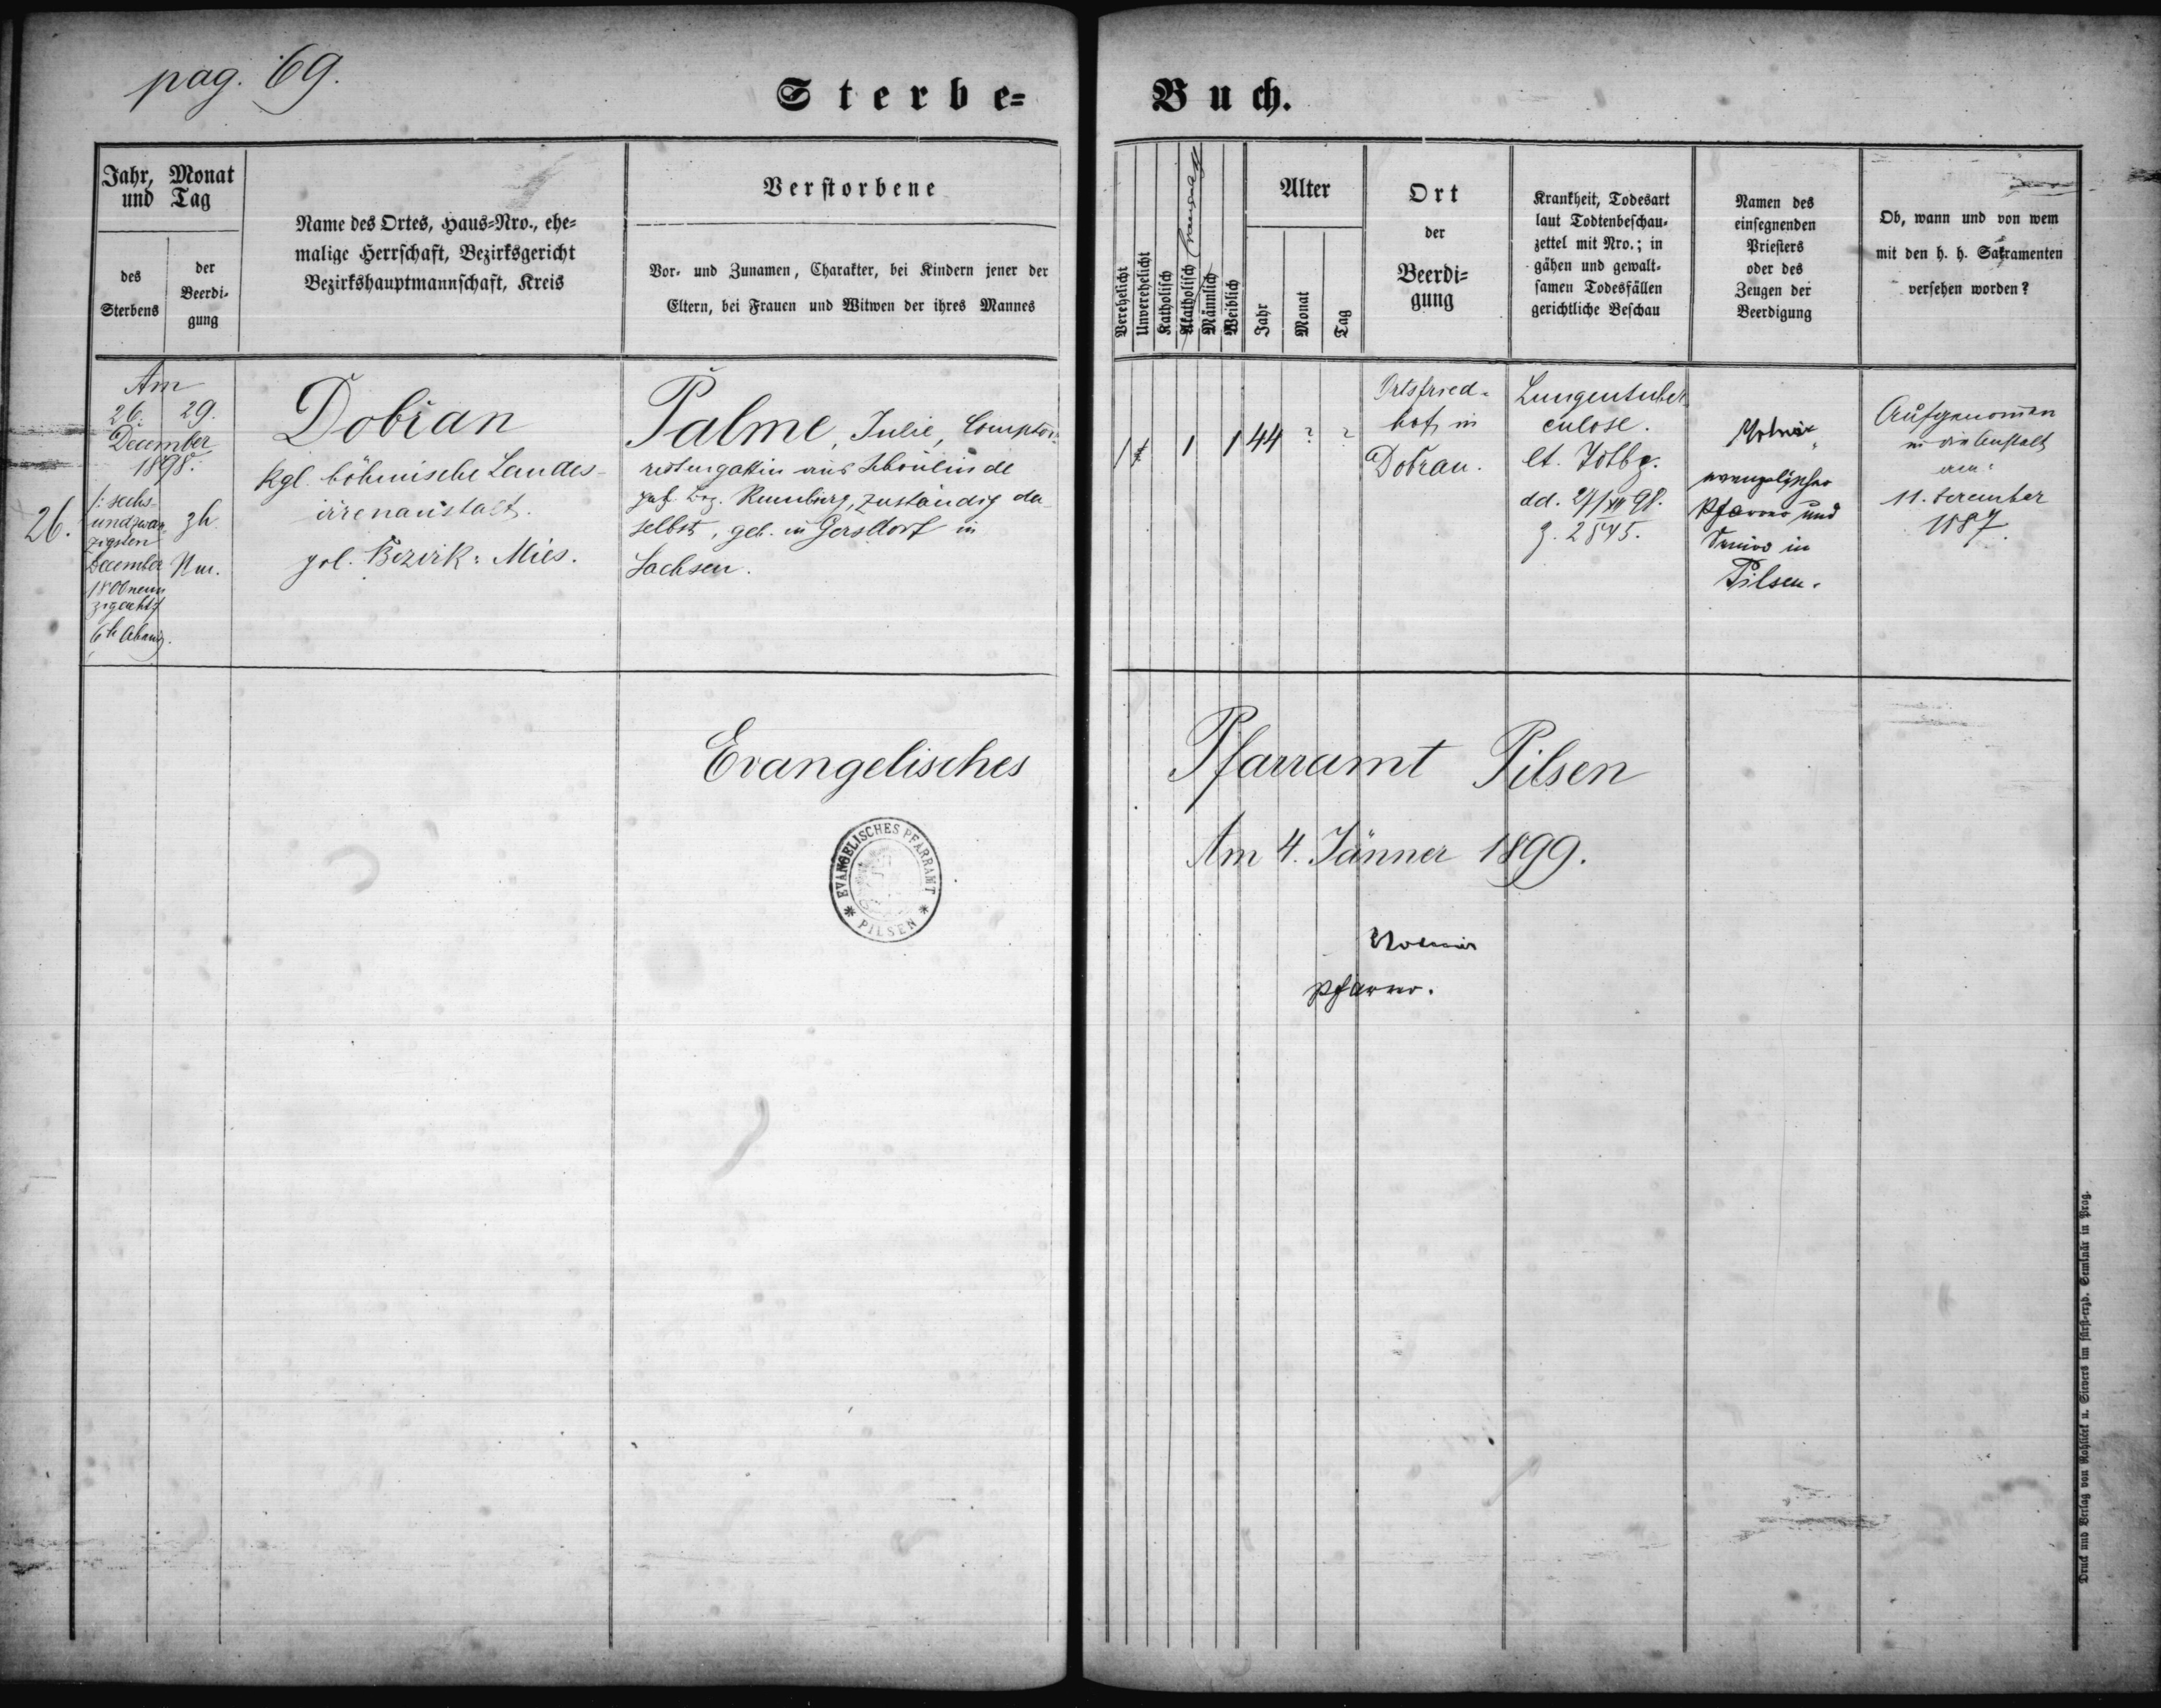 pag. 69.
Sterbe-
Buch.
Jahr, Monat
und Tag
des
Sterbens
der
Beerdi-
gung
Name des Ortes, Haus-Nro., ehe-
malige Herrschaft, Bezirksgericht
Bezirkshauptmannschaft, Kreis
Verstorbene
Vor- und Zunamen, Charakter, bei Kindern jener der
Eltern, bei Frauen und Witwen der ihres Mannes
Verehelicht
Unverehelicht
Katholisch
Akatholisch
Männlich
Weiblich
Alter
Jahr
Monat
Tag
Ort
der
Beerdi-
gung
Krankheit, Todesart
laut Todtenbeschau-
zettel mit Nro.; in
gähen und gewalt-
samen Todesfällen
gerichtliche Beschau
Namen des
einsegnenden
Priesters
oder des
Zeugen der
Beerdigung
Ob, wann und von wem
mit den h. h. Sakramenten
versehen worden?
26.
Am
26. 29.
December
1898.
/: sechs-
undzwan
zigsten
December
1800neun
zigacht
6h Abends.
3h
Nm.
Dobřan
kgl. böhmische Landes-
irrenanstalt.
pol. Bezirk: Mies.
Palme, Julie, Comptoi-
ristensgattin aus Schönlinde
Bez. Rumburg, zuständig da-
selbst, geb. in Gersdorf in
Sachsen.
1 1 1 44 ? ?
Ortsfried-
hof in
Dobřan.
Lungentuber
culose.
lt. Tdtbz.
dd. 27/XII 98.
Z. 2845.
Molnár
evangelischer
Pfarrer und
Senior in
Pilsen.
Aufgenommen
in die Anstalt
am
11. December
1887.
Evangelisches
Pfarramt Pilsen
Am 4. Jänner 1899.
EVANGELISCHES PFARRAMT
* PILSEN *
Molnár
Pfarrer.
Druck und Verlag von Rohliček u. Sievers im fürst-erzb. Seminär in Prag.